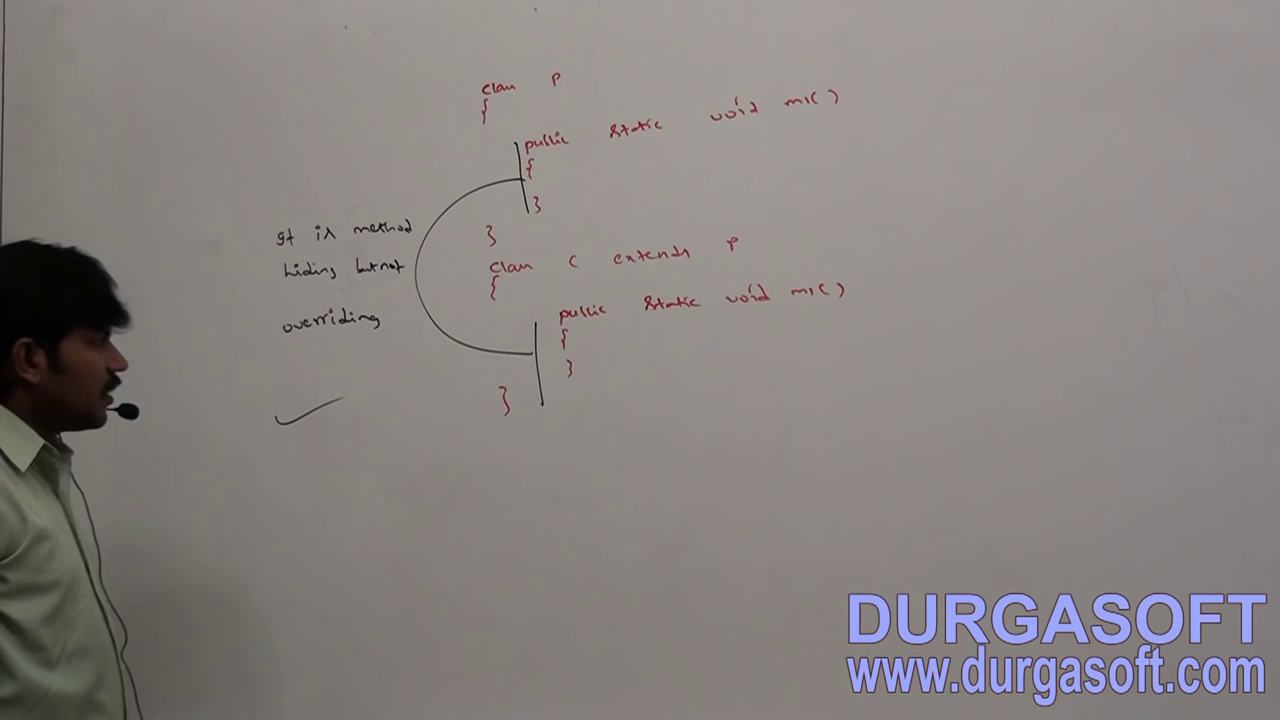 class P
{
public static void m1()
{
}
}
class C extends P
{
public static void m1()
{
}
}
It is method
hiding but not
overriding
DURGASOFT
www.durgasoft.com